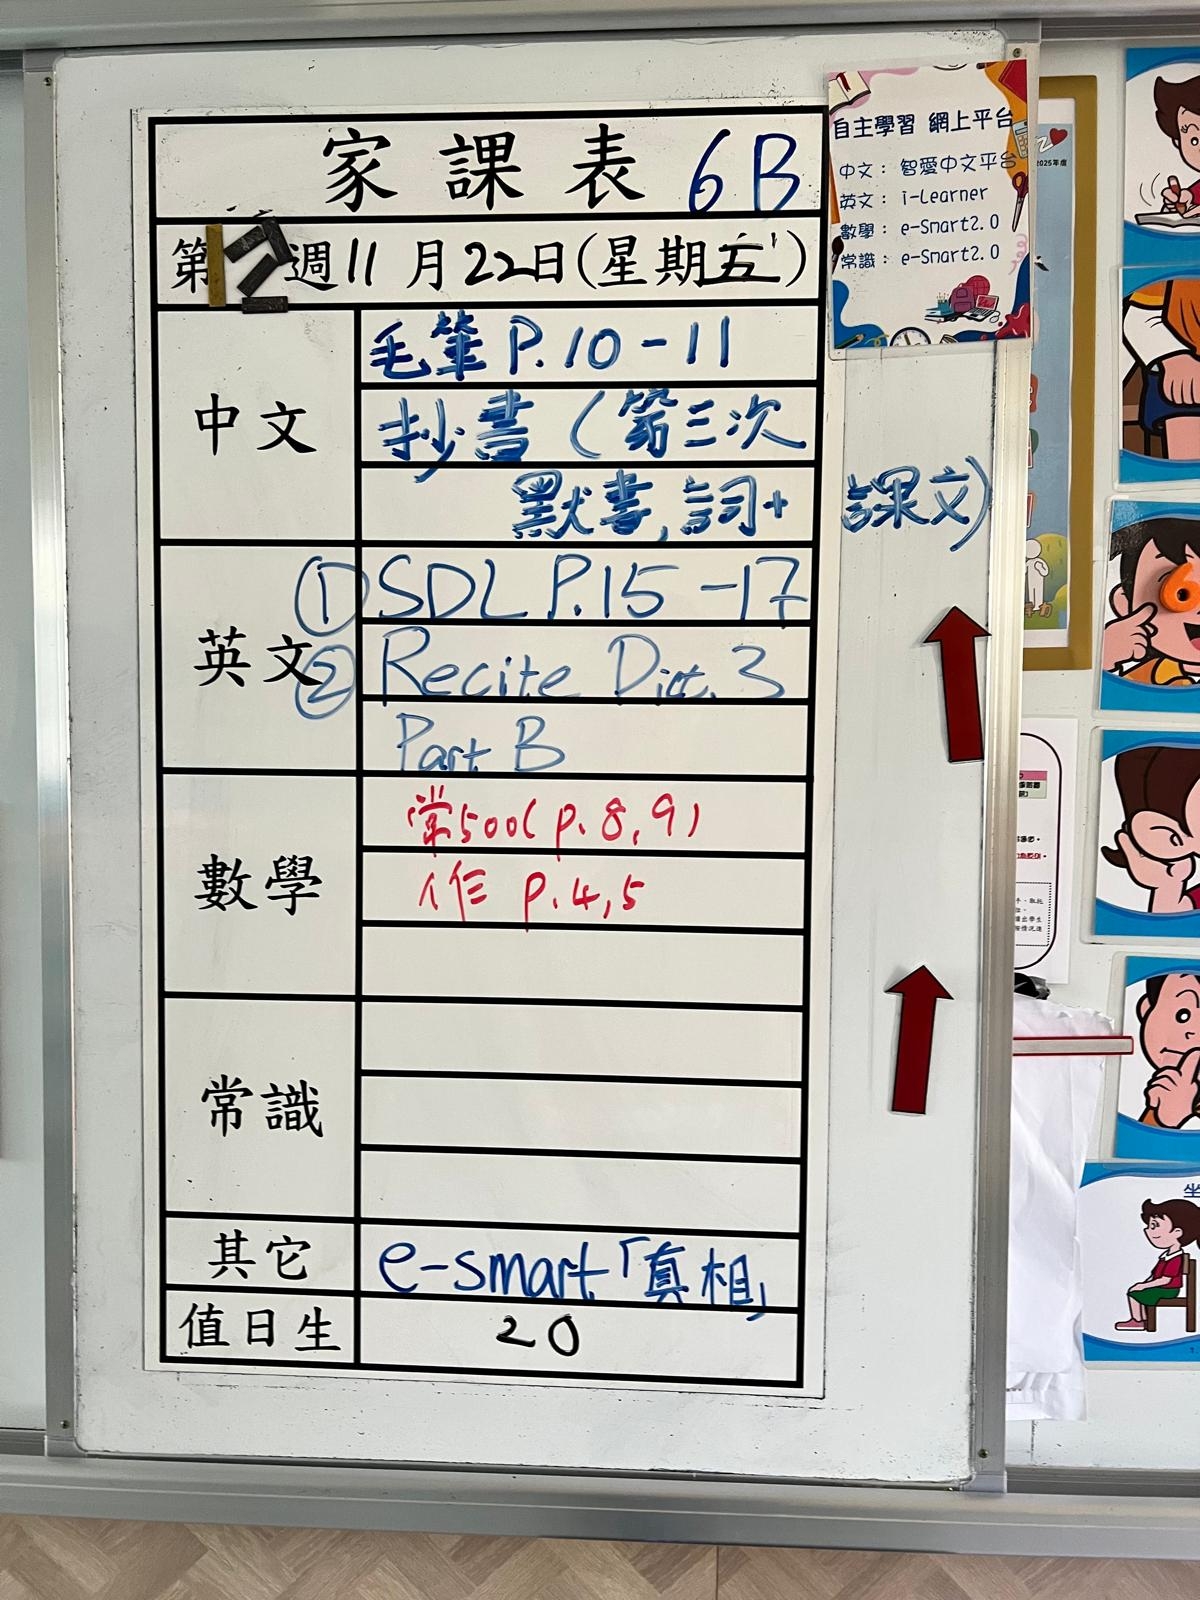 家課表 6B
第12週11月22日(星期五)
中文
毛筆 P.10-11
抄書 (第三次
默書,詞+ 課文)
英文
① SDL P.15-17
② Recite Dict. 3
Part B
數學
堂500( p.8,9)
作 p.4,5
常識
其它
e-smart「真相」
值日生
20
自主學習 網上平台
中文： 智愛中文平台
英文： i-Learner
數學： e-Smart2.0
常識： e-Smart2.0
2025年度
6
坐